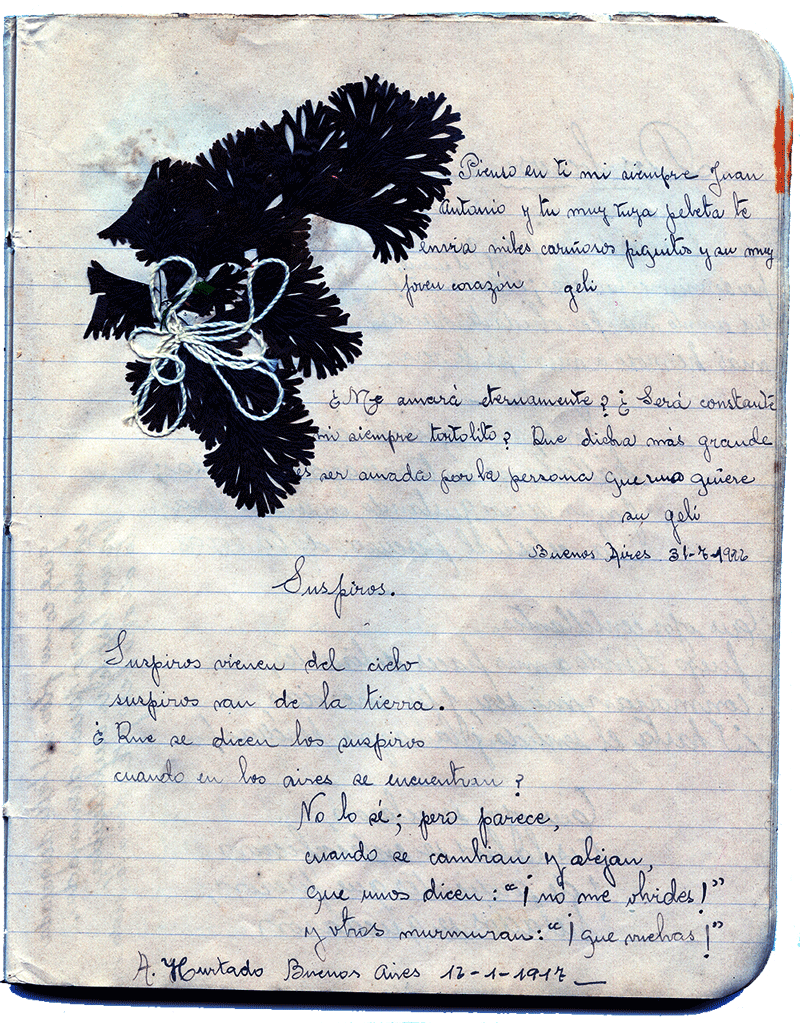 Pienso en ti mi siempre Juan
Antonio y tu muy tuya pebeta te
envia miles cariñosos piquitos y su muy
joven corazón geli
¿Me amará eternamente? ¿Será constante
mi siempre tortolito? Que dicha más grande
es ser amada por la persona que uno quiere
su geli
Buenos Aires 31-7-1922
Suspiros.
Suspiros vienen del cielo
suspiros van de la tierra.
¿Que se dicen los suspiros
cuando en los aires se encuentran?
No lo sé; pero parece,
cuando se cambian y alejan,
que unos dicen: "¡no me olvides!"
y otros murmuran: "¡que vuelvas!"
A. Hurtado Buenos Aires 12-1-1917